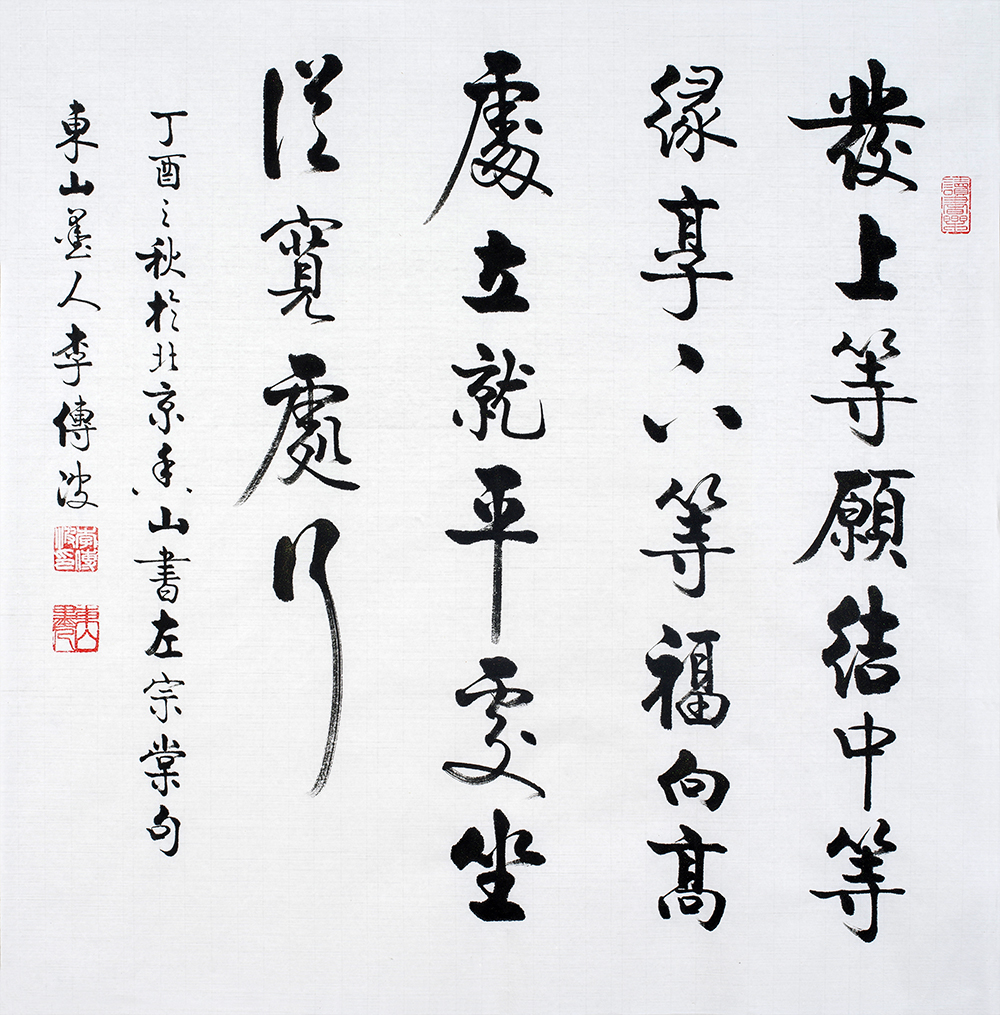 發上等願結中等
緣享下等福向高
處立就平處坐
從寬處行
丁酉之秋於北京香山書左宗棠句
東山墨人李傳波
李傳波印